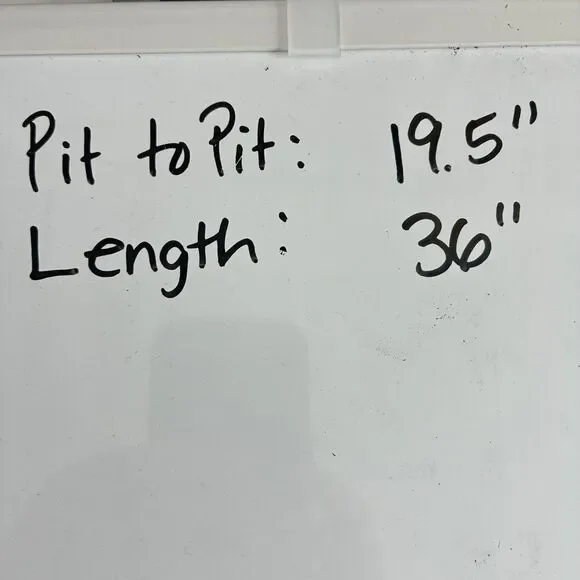 Pit to Pit: 19.5"
Length: 36"